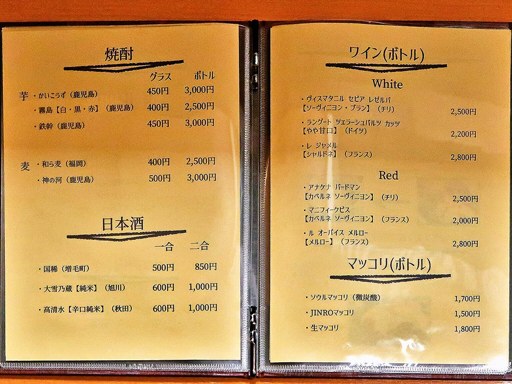 焼酎
グラス ボトル
芋 ・かいこうず(鹿児島) 450円 3,000円
・霧島【白・黒・赤】(鹿児島) 400円 2,500円
・鉄幹(鹿児島) 450円 3,000円
麦 ・和ら麦(福岡) 400円 2,500円
・神の河(鹿児島) 500円 3,000円
日本酒
一合 二合
・国稀(増毛町) 500円 850円
・大雪乃蔵【純米】(旭川) 600円 1,000円
・高清水【辛口純米】(秋田) 600円 1,000円
ワイン(ボトル)
White
・ヴィスマタニル セピア レゼルバ
【ソーヴィニヨン・ブラン】(チリ) 2,500円
・ランゲート ツェラーシュバルツ カッツ
【やや甘口】(ドイツ) 2,200円
・レ ジャメル
【シャルドネ】(フランス) 2,800円
Red
・アナケナ バードマン
【カベルネ ソーヴィニヨン】(チリ) 2,500円
・マニフィークビス
【カベルネ ソーヴィニヨン】(フランス) 2,000円
・ル オーバイス メルロー
【メルロー】(フランス) 2,800円
マッコリ(ボトル)
・ソウルマッコリ(微炭酸) 1,700円
・JINROマッコリ 1,500円
・生マッコリ 1,800円